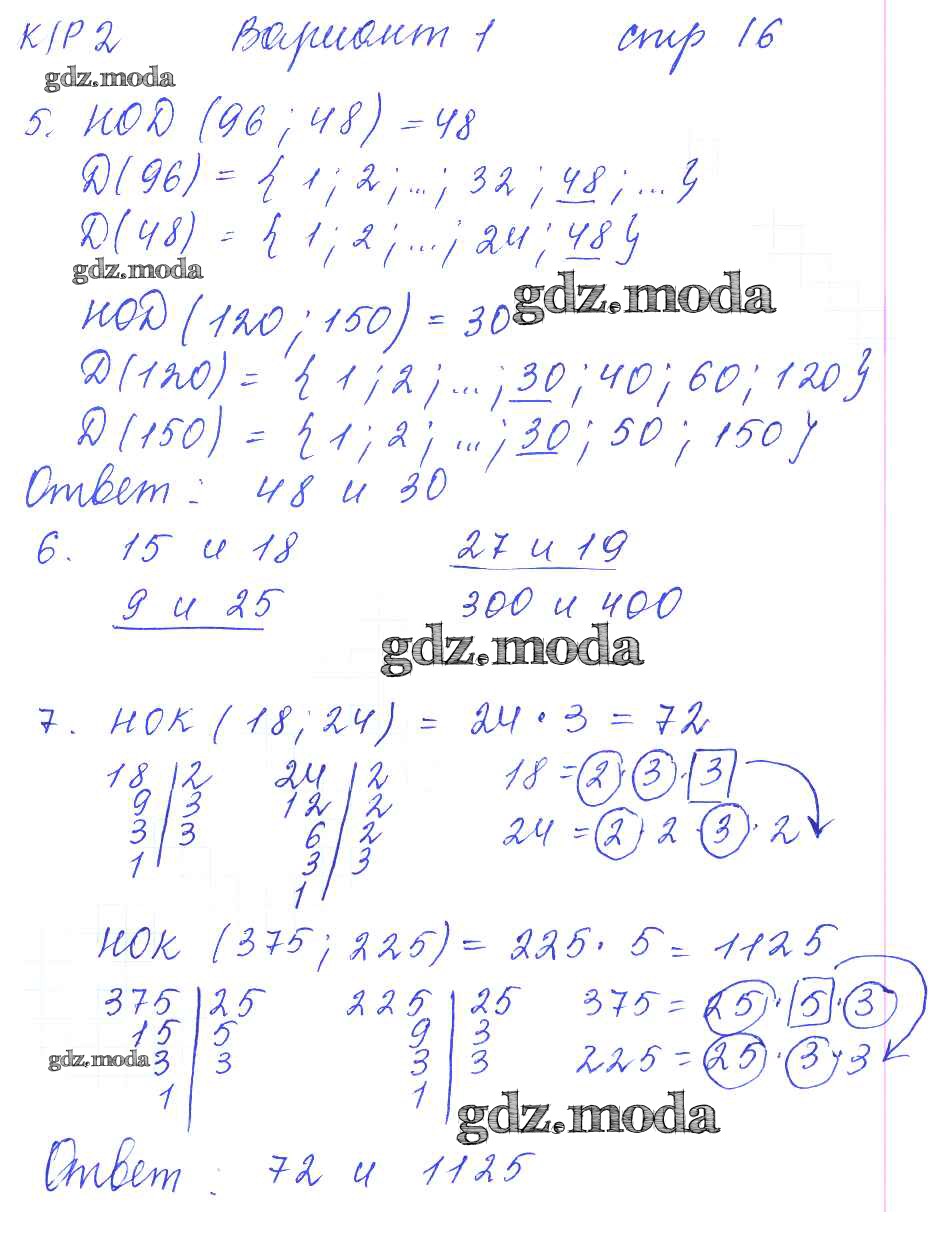 К/Р 2 Вариант 1 стр 16
gdz.moda
5. НОД (96 ; 48) = 48
Д(96) = { 1 ; 2 ; ... ; 32 ; 48 ; ... }
Д(48) = { 1 ; 2 ; ... ; 24 ; 48 }
gdz.moda
gdz.moda
НОД (120 ; 150) = 30
Д(120) = { 1 ; 2 ; ... ; 30 ; 40 ; 60 ; 120 }
Д(150) = { 1 ; 2 ; ... ; 30 ; 50 ; 150 }
Ответ : 48 и 30
6. 15 и 18 27 и 19
9 и 25 300 и 400
gdz.moda
7. НОК (18 ; 24) = 24 · 3 = 72
18 | 2 24 | 2 18 = 2 · 3 · 3
9 | 3 12 | 2
3 | 3 6 | 2 24 = 2 · 2 · 3 · 2
1 | 3 | 3
1
НОК (375 ; 225) = 225 · 5 = 1125
375 | 25 225 | 25 375 = 25 · 5 · 3
15 | 5 9 | 3
gdz.moda 3 | 3 3 | 3 225 = 25 · 3 · 3
1 1
gdz.moda
Ответ : 72 и 1125